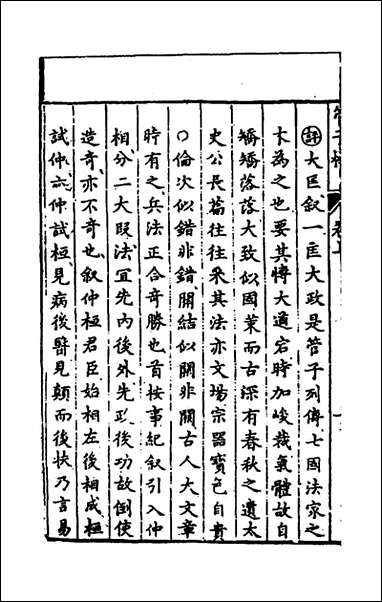 評大匡叙一匡大政是管子列傳七國法家之
為之也要其博大通宕時加峻裁氣體故自
矯矯落落大致似國策而古深有春秋之遺太
史公長篇往往采其法亦文場宗器寶色自貴
○倫次似錯非錯關結似關非關古人大文章
時有之兵法正合奇勝也首按事紀叙引入仲
相分二大段法宜先內後外先政後功故倒使
造奇亦不奇也叙仲桓君臣始相左後相成桓
試仲亦仲試桓見病後醫見顛而後扶乃言易